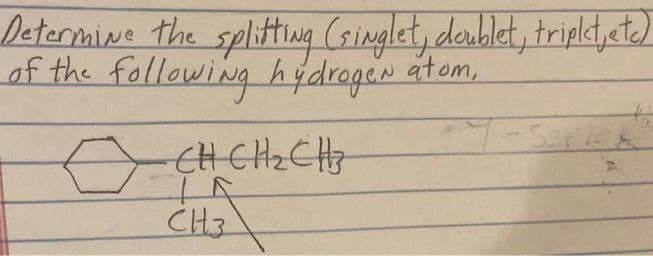 Determine the splitting (singlet, doublet, triplet, etc)
of the following hydrogen atom.
CH CH₂CH₃
CH₃